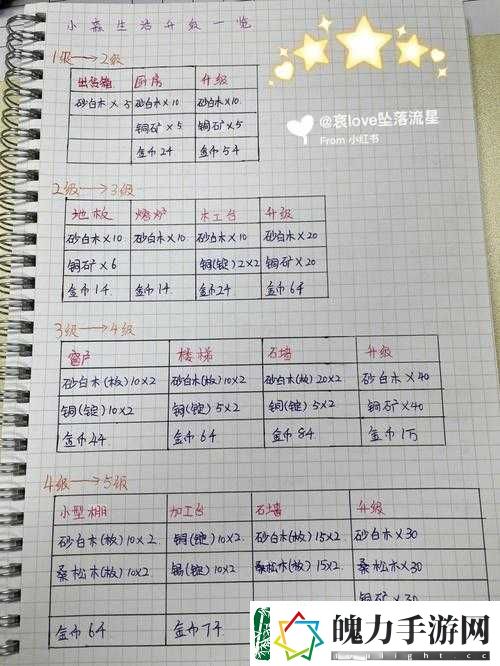 小森生活升级一览
1级→2级
出货箱 厨房 升级
砂白木×5 砂白木×10 砂白木×10
铜矿×5 铜矿×5
金币24 金币54
@哀love坠落流星
From 小红书
2级→3级
地板 烤炉 木工台 升级
砂白木×10 砂白木×10 砂白木×10 砂白木×20
铜矿×6 铜(锭)2×2 铜矿×20
金币14 金币14 金币24 金币64
3级→4级
窗户 楼梯 石墙 升级
砂白木(板)10×2 砂白木(板)10×2 砂白木(板)20×2 砂白木×40
铜(锭)10×2 铜(锭)5×2 铜(锭)5×2 铜矿×40
金币44 金币64 金币84 金币1万
4级→5级
小型棚 加工台 石墙 升级
砂白木(板)10×2 铜(锭)10×2 砂白木(板)15×2 砂白木×30
桑松木(板)10×2 锡(锭)10×2 桑松木(板)15×2 桑松木×30
铜矿×30
金币64 金币74
魄力手游网